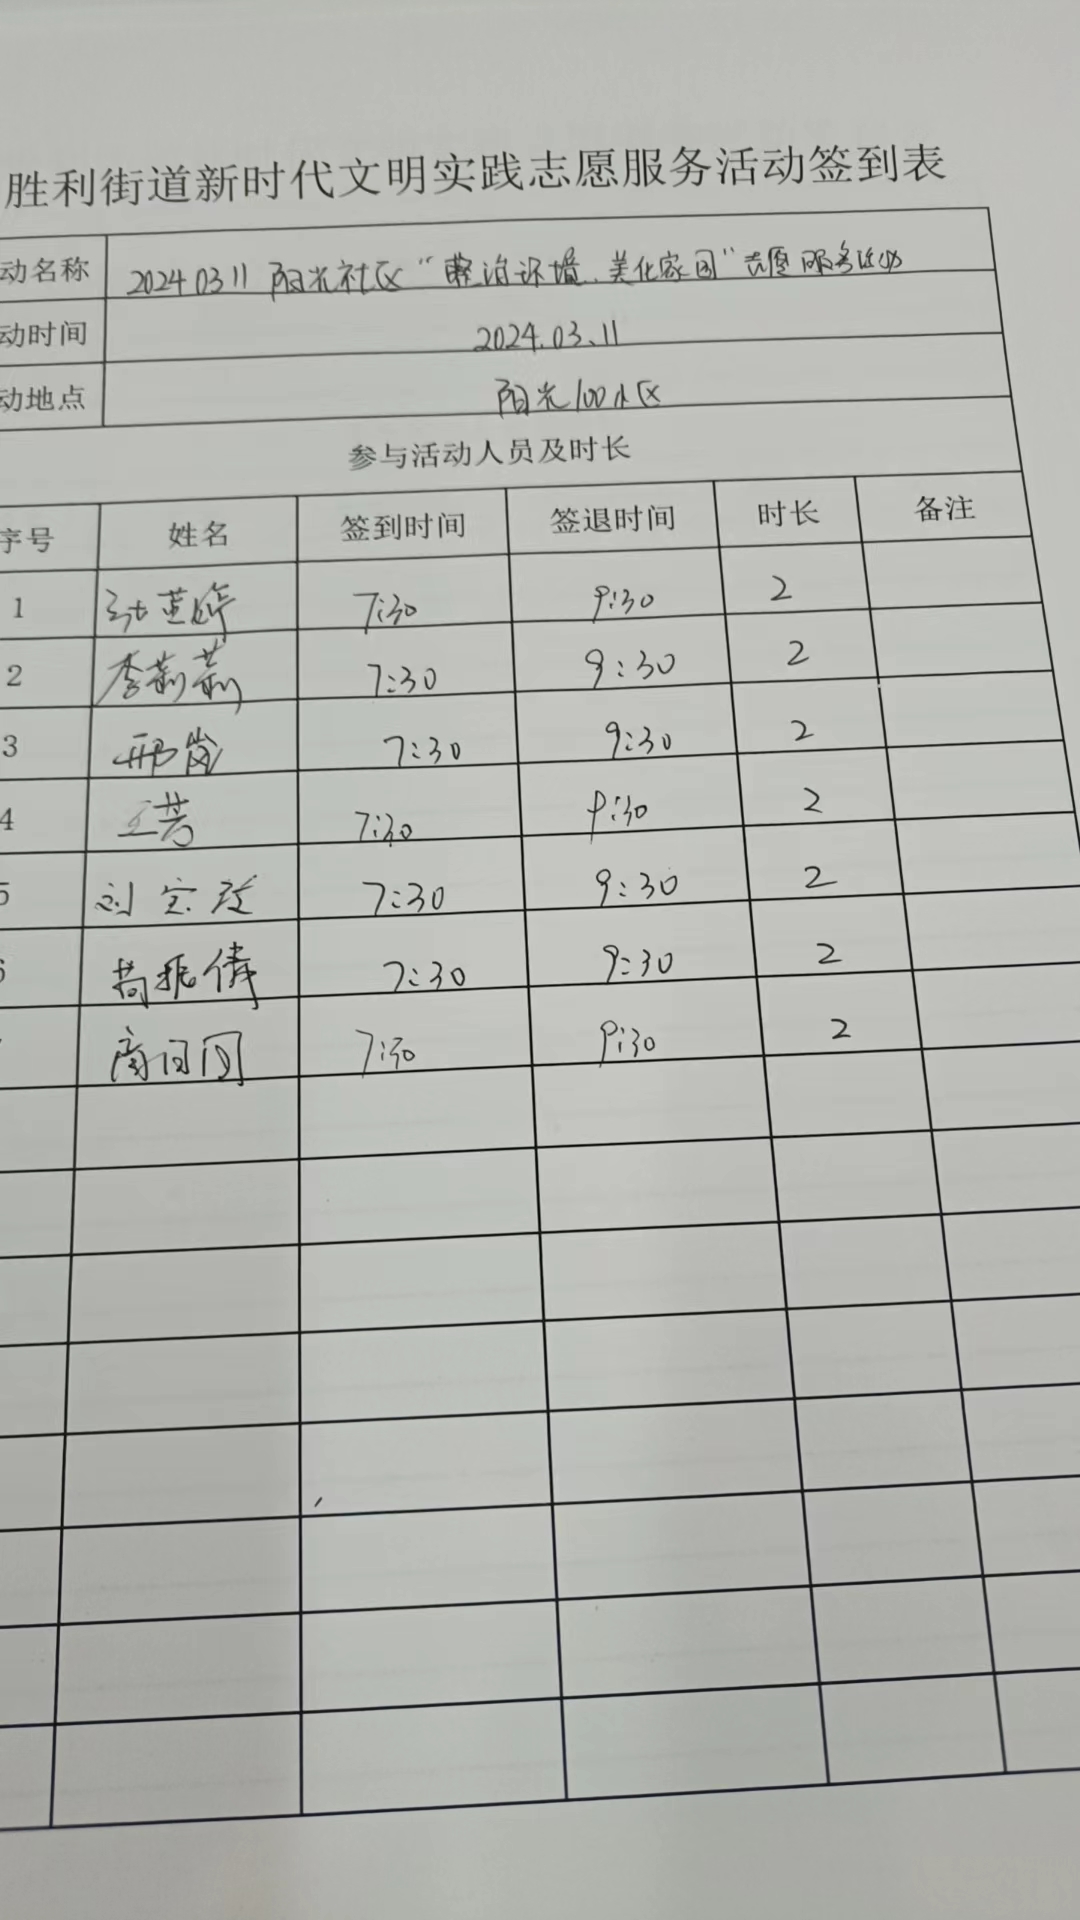 胜利街道新时代文明实践志愿服务活动签到表
动名称 2024 03 11 阳光社区“整治环境、美化家园”志愿服务活动
动时间 2024.03.11
动地点 阳光100小区
参与活动人员及时长
序号 姓名 签到时间 签退时间 时长 备注
1 7:30 9:30 2
2 李莉莉 7:30 9:30 2
3 邢岚 7:30 9:30 2
4 王芳 7:30 9:30 2
5 刘宝 7:30 9:30 2
6 苟振倩 7:30 9:30 2
7:30 9:30 2